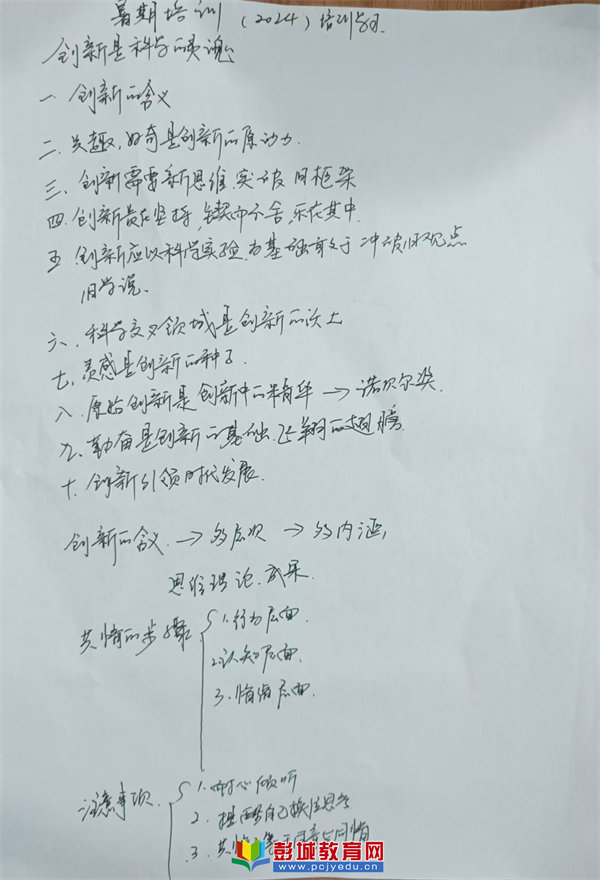 暑期培训 (2024) 培训
创新是科学的灵魂
一、创新的含义
二、兴趣,好奇是创新的原动力.
三、创新需要新思维,突破旧框架
四.创新贵在坚持,锲而不舍,乐在其中.
五.创新应以科学实验为基础,敢于冲破旧观点
旧学说.
六.科学交叉领域是创新的沃土
七.灵感是创新的种子.
八.原始创新是创新中的精华→诺贝尔奖.
九.勤奋是创新的基础.飞翔的翅膀.
十.创新引领时代发展.
创新的含义.→多层次→多内涵,
思维.理论.成果.
共情的步骤
1.行为层面.
2.认知层面.
3.情绪层面.
注意事项.
1.耐心倾听
2.提醒自己换位思考
3.共情不等于同意与同情
彭城教育网
www.pcjyedu.com